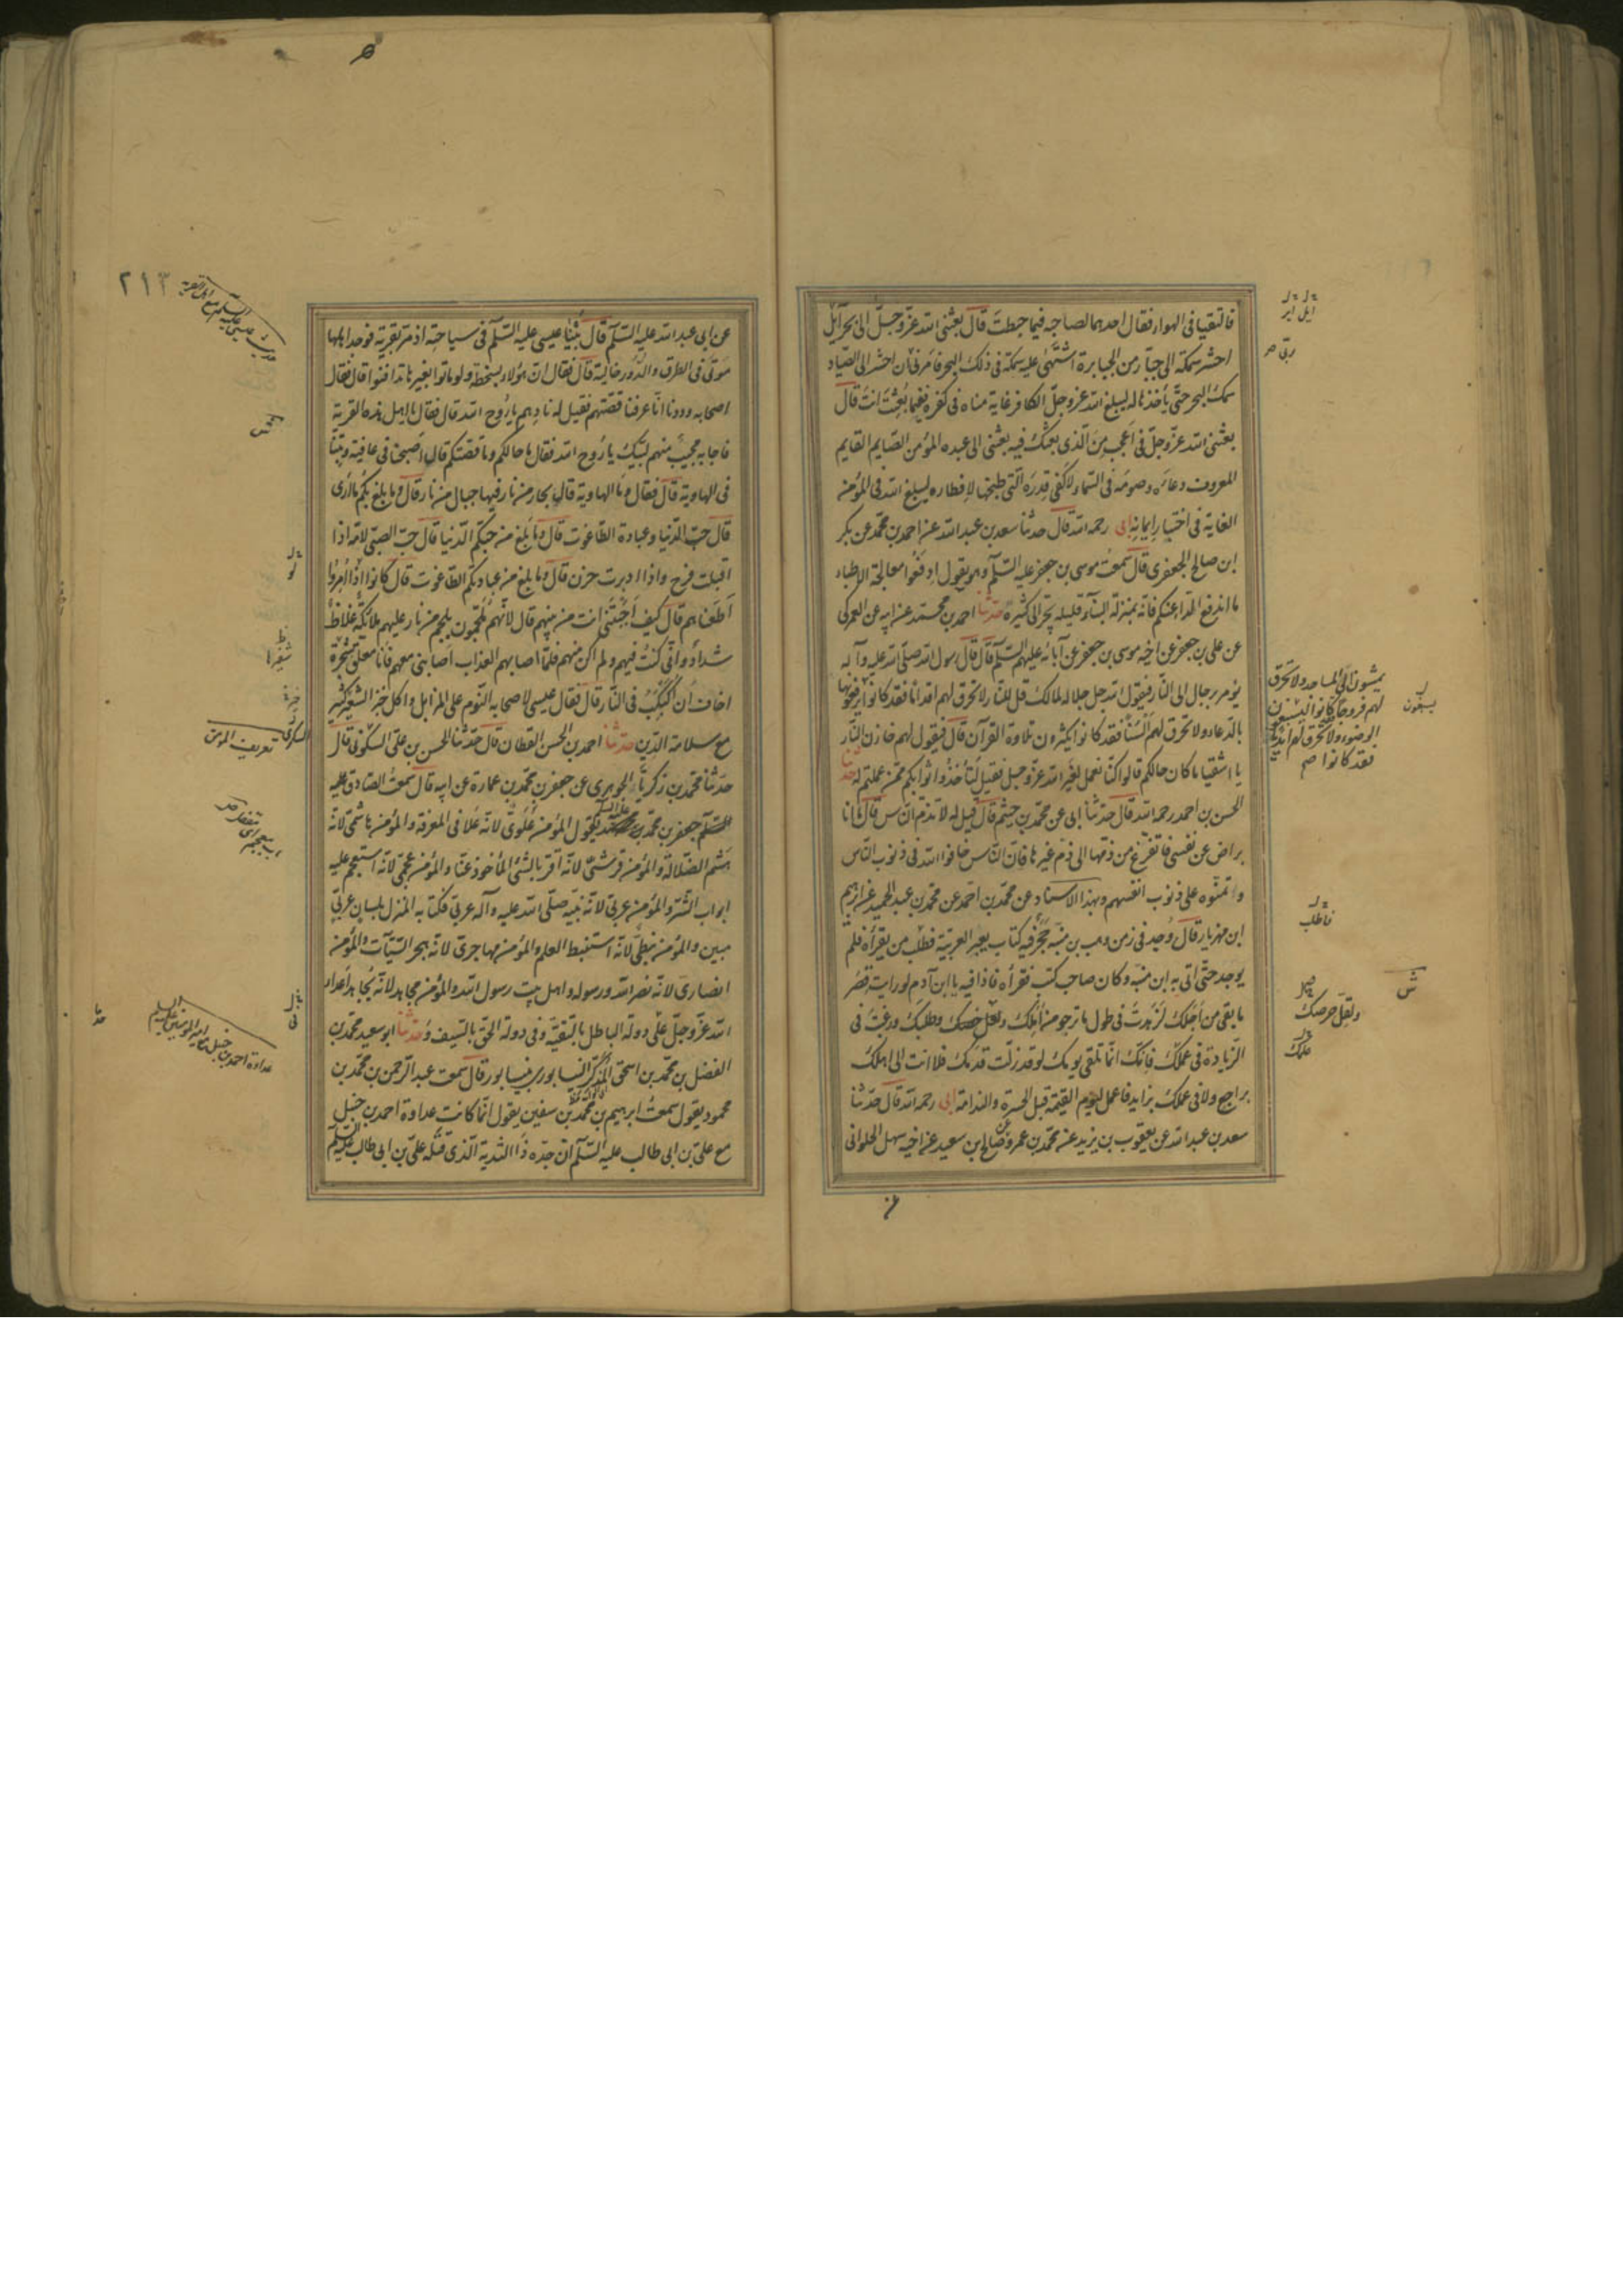 فالتقيا فى الهواء فقال احدهما لصاحبه فيما هبطت قال بعثنى الله عزّ وجلّ الى بحر آيل
احشر سمكة الى جبّار من الجبابرة اشتهى عليه سمكة فى ذلك البحر فامرنى ان احشر الى الصّياد
سمك البحر حتّى يأخذها له ليبلغ الله عزّ وجلّ الكافر غاية مناه فى كفره ففيما بعثت انت قال
بعثنى الله عزّ وجلّ فى اعجب من الّذى بعثك فيه بعثنى الى عبده المؤمن الصّايم القايم
المعروف دعاءه وصومه فى السّماء لاكفى قدره الّتى طبخها لافطاره ليبلغ الله فى المؤمن
الغاية فى اختبار ايمانه ابى رحمه الله قال حدّثنا سعد بن عبد الله عن احمد بن محمّد عن بكر
ابن صالح الجعفرى قال سمعت موسى بن جعفر عليه السّلام وهو يقول ادفعوا معالجة الاطباء
ما اندفع الدّاء عنكم فانّه بمنزلة البناء قليله يجرّ الى كثيره حدّثنا احمد بن محمّد عن ابيه عن العمركى
عن على بن جعفر عن اخيه موسى بن جعفر عن آبائه عليهم السّلام قال قال رسول الله صلّى الله عليه وآله
يؤمر برجال الى النّار فيقول الله جل جلاله لمالك قل للنّار لا تحرق لهم اقداما فقد كانوا يرفعونها
بالدّعاء ولا تحرق لهم السنا فقد كانوا يكثرون تلاوة القرآن قال فيقول لهم خازن النّار
يا اشقيا ما كان حالكم قالوا كنّا نعمل لغير الله عزّ وجل فقيل لنا خذوا ثوابكم ممّن عملتم له حدثنا
الحسن بن احمد رحمه الله قال حدّثنا ابى عن محمّد بن قال قيل له لا تذمّ النّاس قال ما انا
براض عن نفسى فاتفرّغ من ذمّها الى ذمّ غيرها فانّ النّاس خافوا الله فى ذنوب النّاس
وائتمنوه على ذنوب انفسهم وبهذا الاسناد عن محمّد بن احمد عن محمّد بن عبد الحميد عن ابرهيم
ابن مهزيار قال وجد فى زمن وهب بن منبّه حجر فيه كتاب بغير العربيّة فطلب من يقرأه فلم
يوجد حتّى اتى به ابن منبّه وكان صاحب كتب فقرأه فاذا فيه يا ابن آدم لو رايت قصر
ما بقى من اجلك لزهدت فى طول ما ترجو من املك ولقل حرصك وطلبك ورغبت فى
الزّيادة فى عملك فانك انّما تلقى يومك لو قد زلّت قدمك فلا انت الى اهلك
براجع ولا فى عملك بزايد فاعمل ليوم القيمة قبل الحسرة والندامة ابى رحمه الله قال حدّثنا
سعد بن عبد الله عن يعقوب بن يزيد عن محمّد بن عمرو عن صالح بن سعيد عن اخيه سهل الحلوانى
يمشون الى المساجد ولا تحرق
لهم فروجا كانوا
الوضوء ولا تحرق لهم ايديا
فقد كانوا صح
يسبغون
فاطلب
ولقل حرصك
ش
٢١٣
عن ابى عبد الله عليه السّلام قال بينا عيسى عليه السّلام فى سياحته اذ مرّ بقرية فوجد اهلها
موتى فى الطرق والدّور خالية قال فقال انّ هؤلاء بسخطة ولو ماتوا بغيرها تدافنوا قال فقال
اصحابه وددنا انّا عرفنا قصّتهم فقيل له نادهم يا روح الله قال فقال يا اهل هذه القرية
فاجابه مجيب منهم لبّيك يا روح الله فقال ما حالكم وما قصّتكم قال اصبحنا فى عافية وبتنا
فى الهاوية قال فقال وما الهاوية قال بحار من نار فيها جبال من نار قال وما بلغ بكم ما ارى
قال حبّ الدّنيا وعبادة الطّاغوت قال وما بلغ من حبّكم الدّنيا قال حبّ الصبّى لامّه اذا
اقبلت فرح واذا ادبرت حزن قال وما بلغ من عبادتكم الطّاغوت قال كانوا اذا امروا
اطعناهم قال كيف اجبتنى انت من بينهم قال لانّهم ملجمون بلجم من نار عليهم ملائكة غلاظ
شداد وانّى كنت فيهم ولم اكن منهم فلمّا اصابهم العذاب اصابنى معهم فانا معلّق بشجرة
اخاف ان اكبكب فى النّار قال فقال عيسى لاصحابه النّوم على المزابل واكل خبز الشّعير كثير
مع سلامة الدّين حدّثنا احمد بن الحسن القطان قال حدّثنا الحسن بن علىّ السكونى قال
حدّثنا محمّد بن زكريّا الجوهرى عن جعفر بن محمّد بن عمارة عن ابيه قال سمعت الصّادق عليه
السّلام جعفر بن محمّد يقول المؤمن علوىّ لانّه علا فى المعرفة والمؤمن هاشمىّ لانّه
هشم الضّلالة والمؤمن قرشىّ لانّه اقرّ بالشّىء المأخوذ عنّا والمؤمن عجمىّ لانّه استعجم عليه
ابواب الشرّ والمؤمن عربىّ لانّ نبيّه صلّى الله عليه وآله عربىّ وكتابه المنزل بلسان عربىّ
مبين والمؤمن نبطىّ لانّه استنبط العلم والمؤمن مهاجرىّ لانّه هجر السّيّآت والمؤمن
انصارىّ لانّه نصر الله ورسوله واهل بيت رسول الله والمؤمن مجاهد لانّه يجاهد اعداء
الله عزّ وجلّ فى دولة الباطل بالتقيّة وفى دولة الحقّ بالسّيف وحدّثنا ابو سعيد محمّد بن
الفضل بن محمّد بن اسحق المذكّر النّيسابورى بنيسابور قال سمعت عبد الرّحمن بن محمّد بن
محمود يقول سمعت ابرهيم بن محمّد بن سفين يقول انّما كانت عداوة احمد بن حنبل
مع علىّ بن ابى طالب عليه السّلام انّ جدّه ذا الثّدية الّذى قتله علىّ بن ابى طالب عليه السّلام
تعريف المؤمن